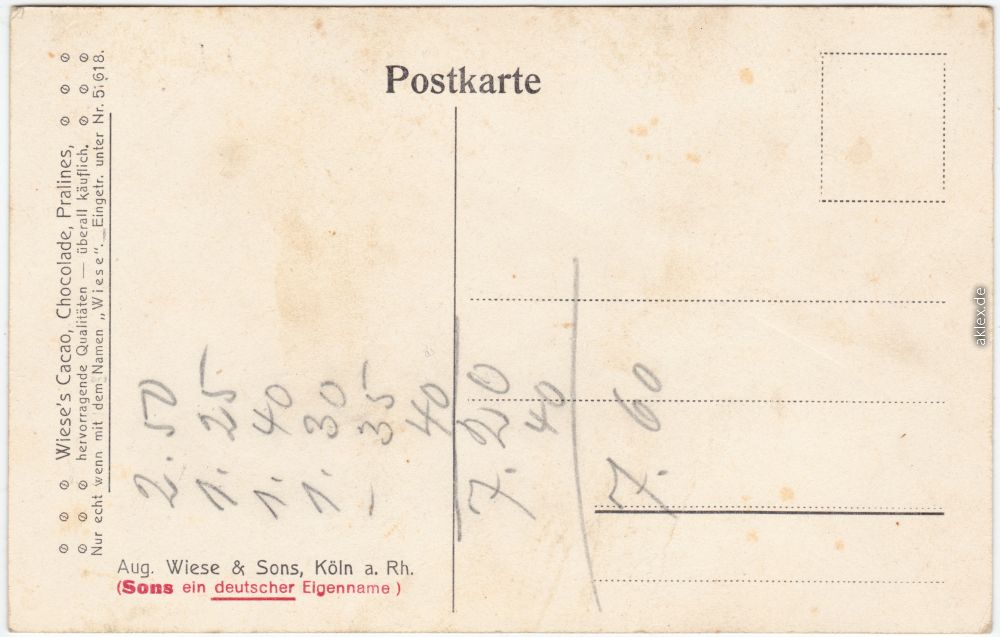 Postkarte
⊘ ⊘ ⊘ Wiese's Cacao, Chocolade, Pralines, ⊘ ⊘ ⊘
⊘ ⊘ ⊘ hervorragende Qualitäten — überall käuflich. ⊘ ⊘ ⊘
Nur echt wenn mit dem Namen „Wiese". Eingetr. unter Nr. 51618.
2.50
1.25
1.40
1.30
-35
40
7.20
40
7.60
Aug. Wiese & Sons, Köln a. Rh.
(Sons ein deutscher Eigenname)
aklex.de